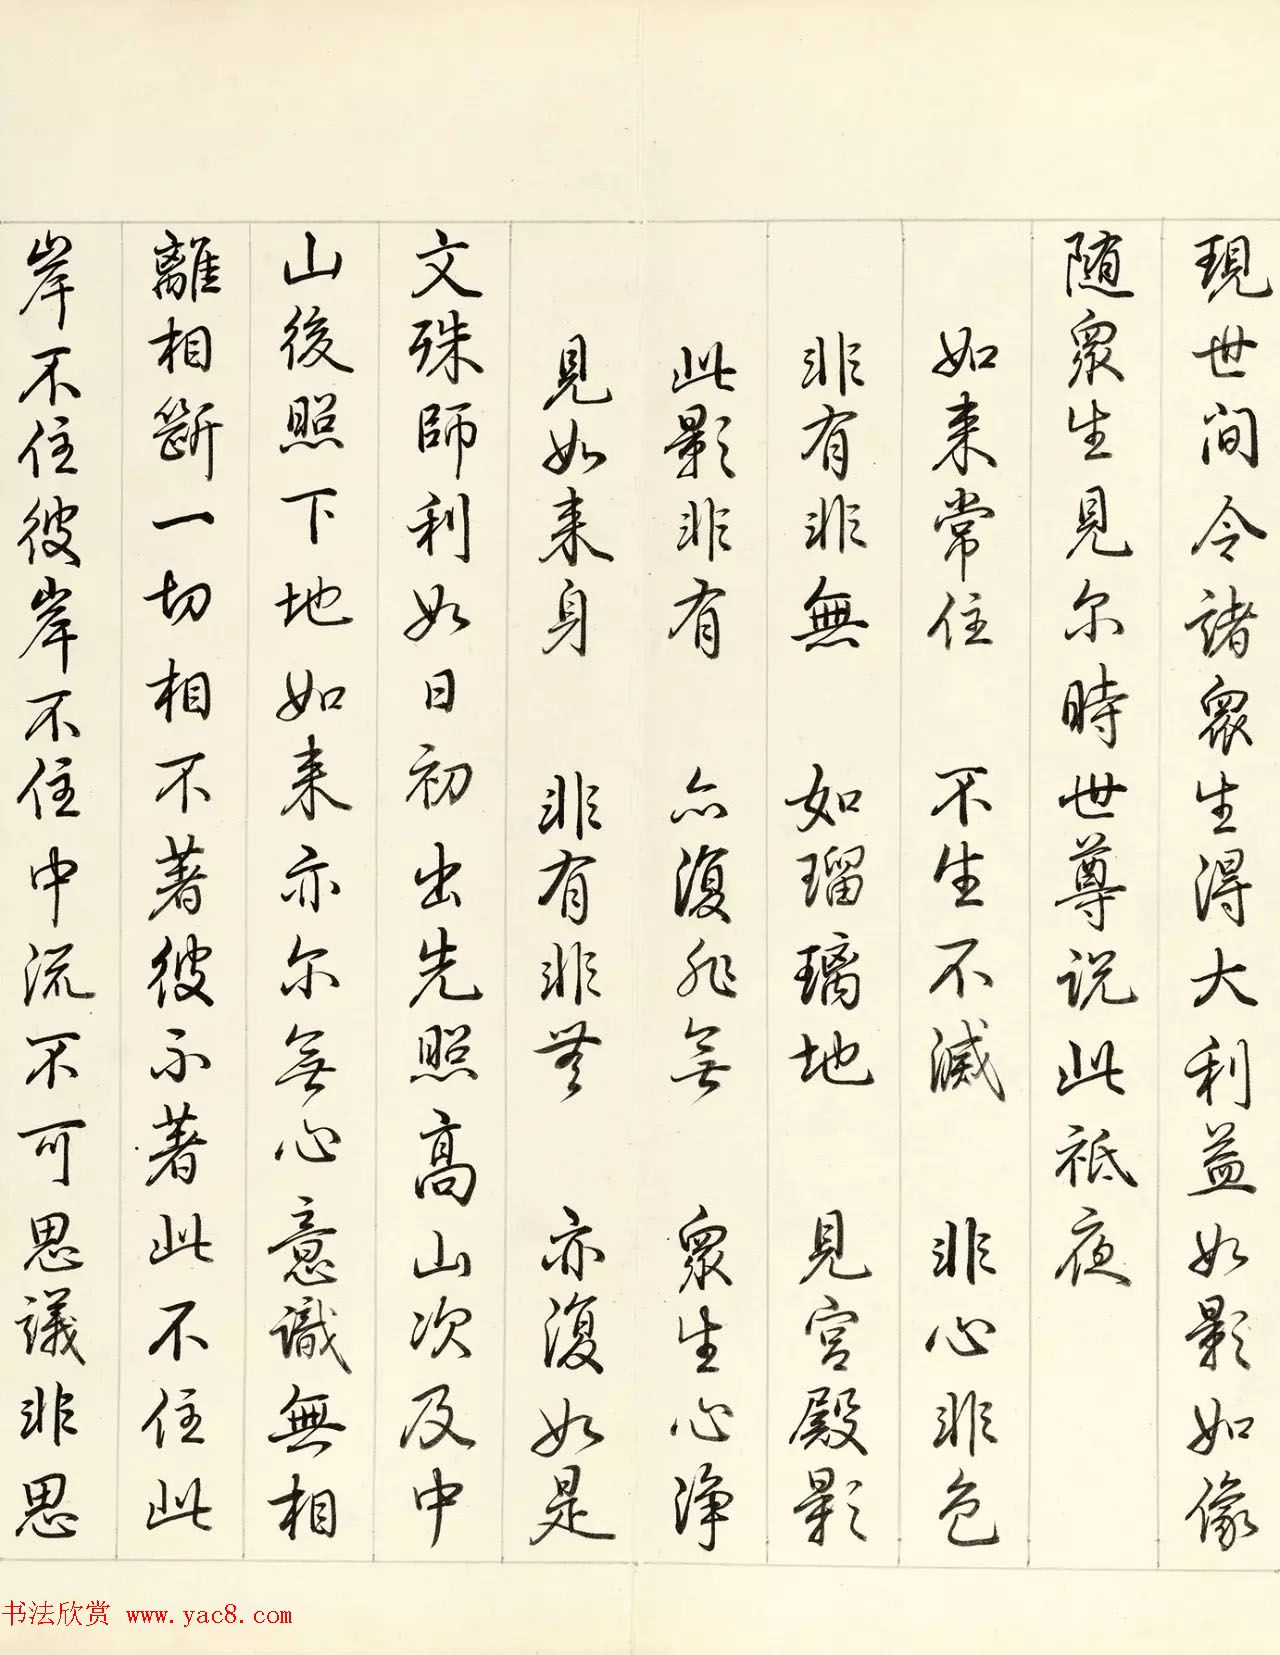 現世间令諸衆生得大利益如影如像
随衆生見尔時世尊说此祗夜
如来常住 不生不滅 非心非色
非有非無 如瑠璃地 見宫殿影
此影非有 亦復非無 衆生心浄
見如来身 非有非無 亦復如是
文殊師利如日初出先照高山次及中
山後照下地如来亦尔無心意識無相
離相斷一切相不著彼不著此不住此
岸不住彼岸不住中流不可思議非思
书法欣赏 www.yac8.com